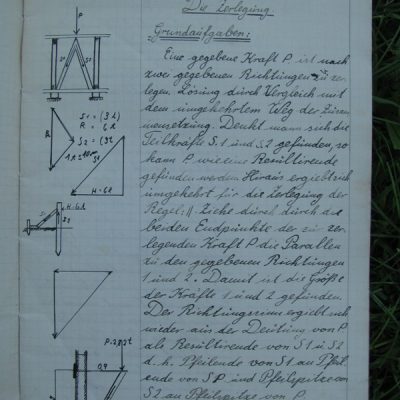 Die Zerlegung
Grundaufgaben:
Eine gegebene Kraft P ist nach
zwei gegebenen Richtungen zu zer-
legen. Lösung durch Vergleich mit
dem umgekehrtem Weg der Zusam
mensetzung. Denkt man sich die
Teilkräfte S1 und S2 gefunden, so
kann P wie eine Resultirende
gefunden werden. Hieraus ergibt sich
umgekehrt für die Zerlegung die
Regel: Ziehe durch
beiden Endpunkte der zu zer-
legenden Kraft P die Parallen
zu den gegebenen Richtungen
1 und 2. Damit ist die Größe
der Kräfte 1 und 2 gefunden.
Der Richtungssinn ergibt sich
wieder aus der Deutung von P
als Resultirende von S1 u S2
d. h. Pfeilende von S1 an Pfeil
ende von P und Pfeilspitze von
S2 an Pfeilspitze von P.
P
S1 S2
S1 = (3t)
R = 6t
R
S2 =
S1
H = 6t
S1
S2
0,9